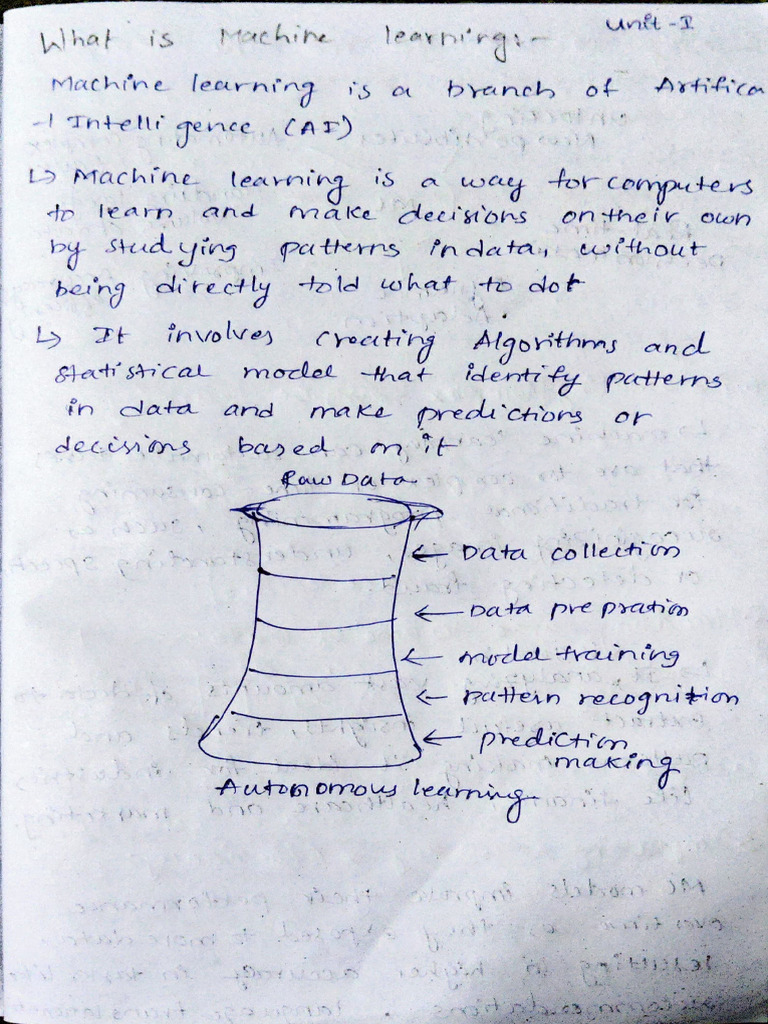 Unit-I
What is Machine learning:-
Machine learning is a branch of Artifica
-l Intelligence (AI)
↳ Machine learning is a way for computers
to learn and make decisions on their own
by studying patterns in data, without
being directly told what to do
↳ It involves creating Algorithms and
statistical model that identify patterns
in data and make predictions or
decisions based on it
Raw Data
← Data collection
← Data prepration
← model training
← pattern recognition
← prediction
making
Autonomous learning.